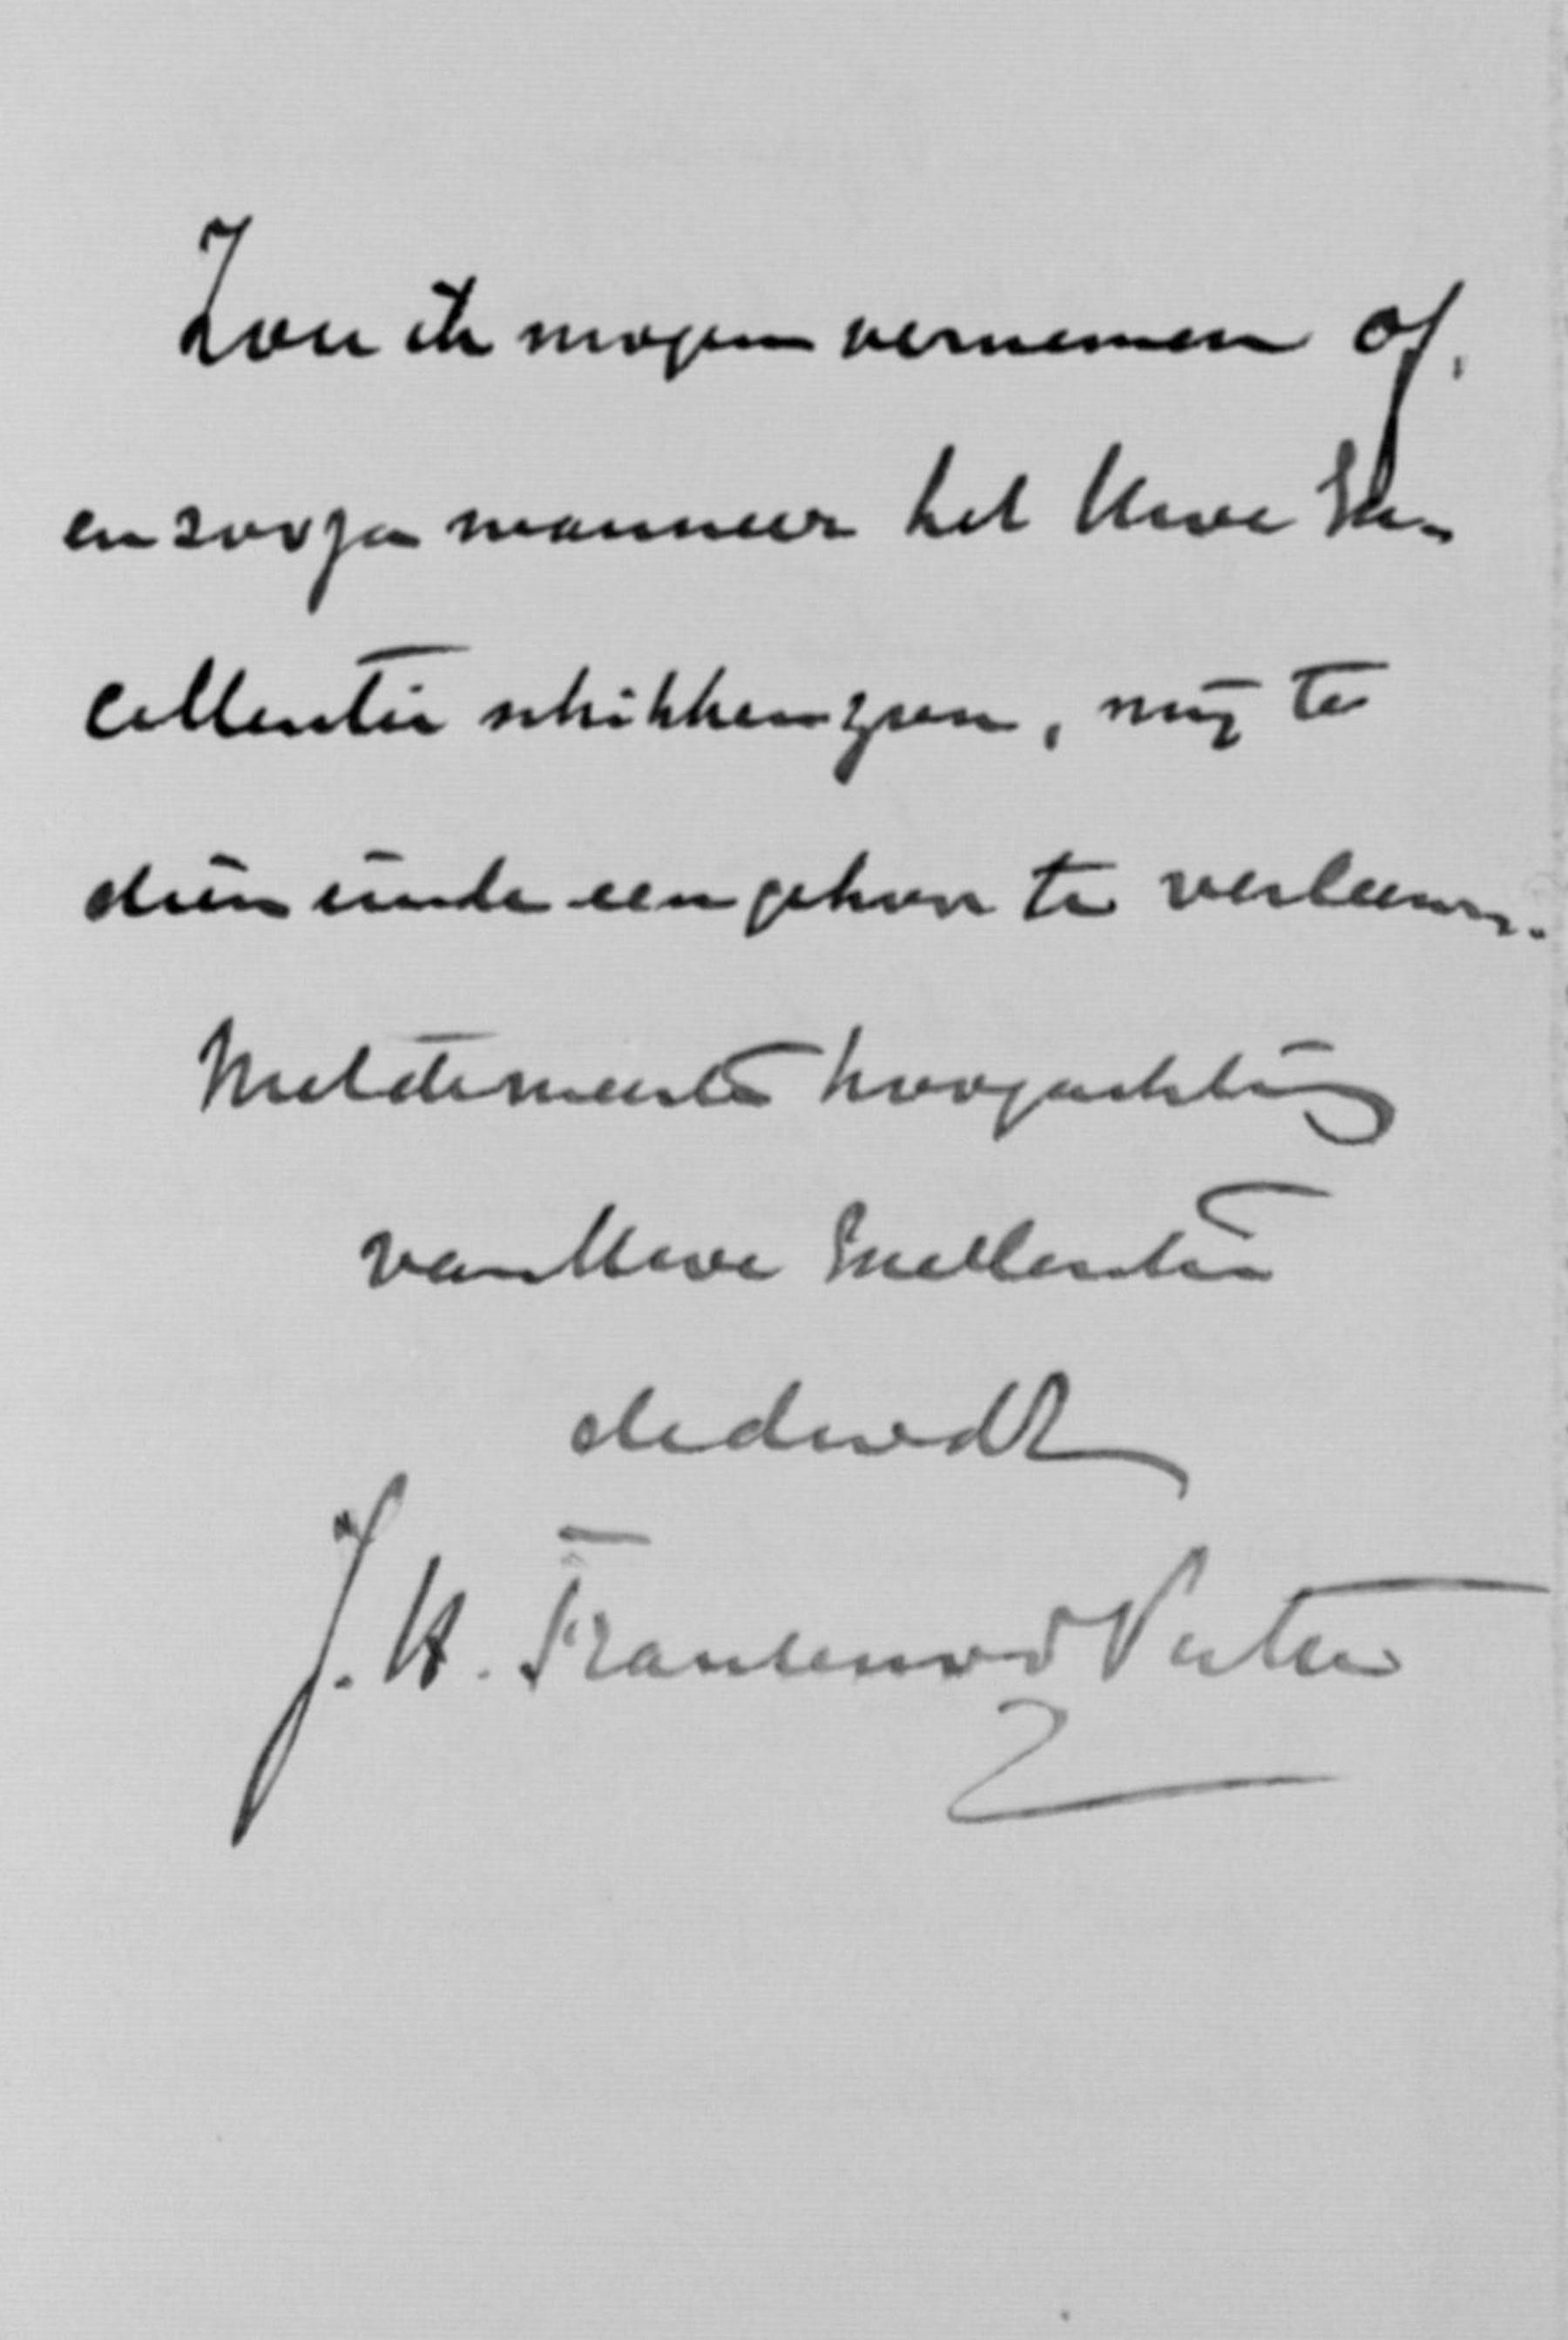 Zou ik mogen vernemen of,
en zoo ja wanneer het Uwe Ex-
cellentie schikken zou, mij te
dien einde een gehoor te verleenen.
Met de meeste hoogachting
van Uwe Excellentie
de dwdr
J. H.